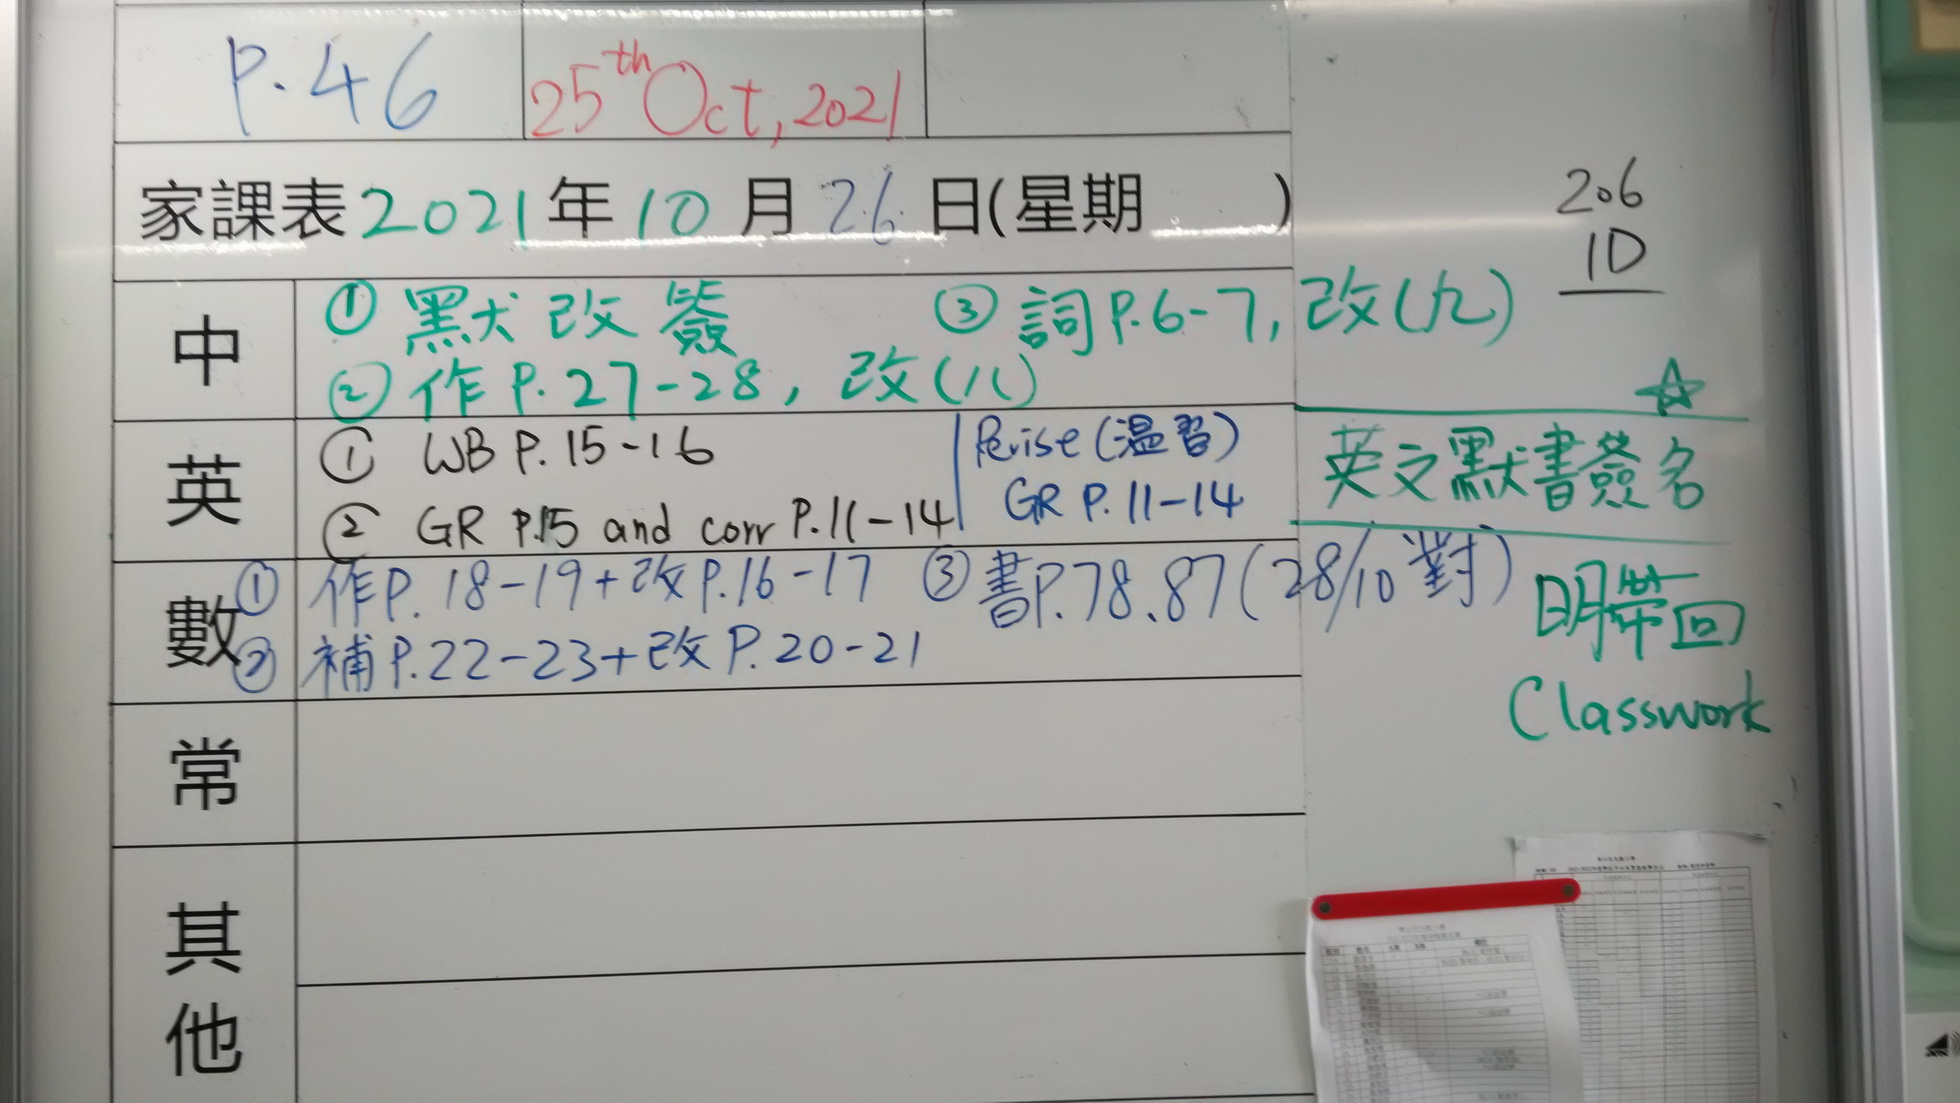 P.46
25th Oct, 2021
家課表2021年10月26日(星期 )
206
10
中
① 默改簽 ③ 詞P.6-7, 改(九)
② 作P.27-28, 改(八)
英
① WB P.15-16
② GR P.15 and corr P.11-14
Revise (溫習)
GR P.11-14
英文默書簽名
數
① 作P.18-19+改P.16-17 ③ 書P.78、87(28/10對)
② 補P.22-23+改P.20-21
明帶回
Classwork
常
其
他